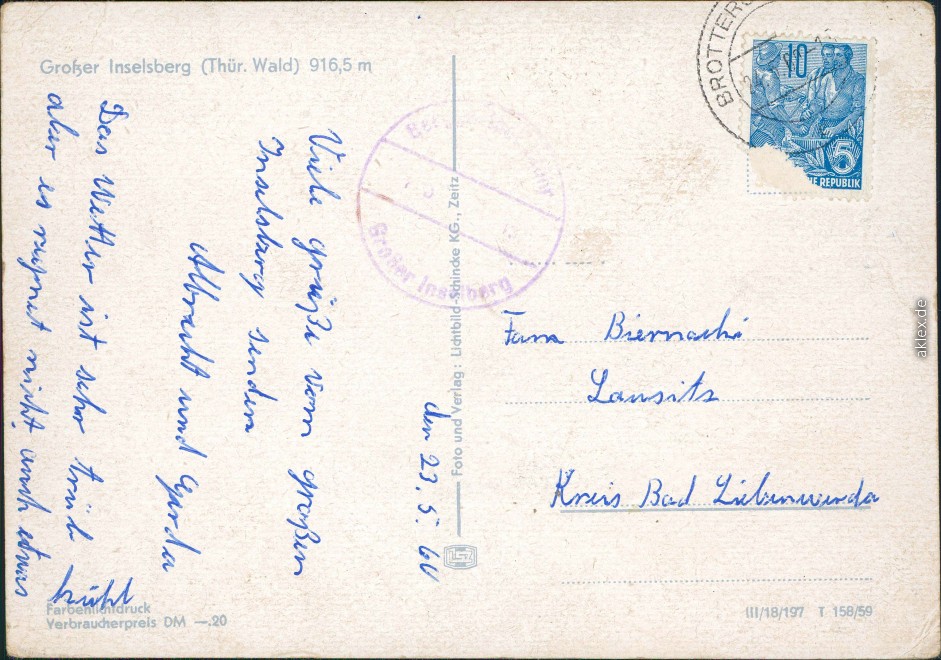 Großer Inselsberg (Thür. Wald) 916,5 m
den 23. 5. 60
Viele Grüße vom großen
Inselsberg senden
Albrecht und Gerda
Das Wetter ist sehr trüb
aber es regnet nicht auch etwas
kühl
Farbenlichtdruck
Verbraucherpreis DM —.20
Foto und Verlag: Lichtbild-Schincke KG., Zeitz
Großer Inselberg
BROTTERO
10
5
REPUBLIK
Fam Biernacki
Lausitz
Kreis Bad Liebenwerda
III/18/197 T 158/59
aklex.de